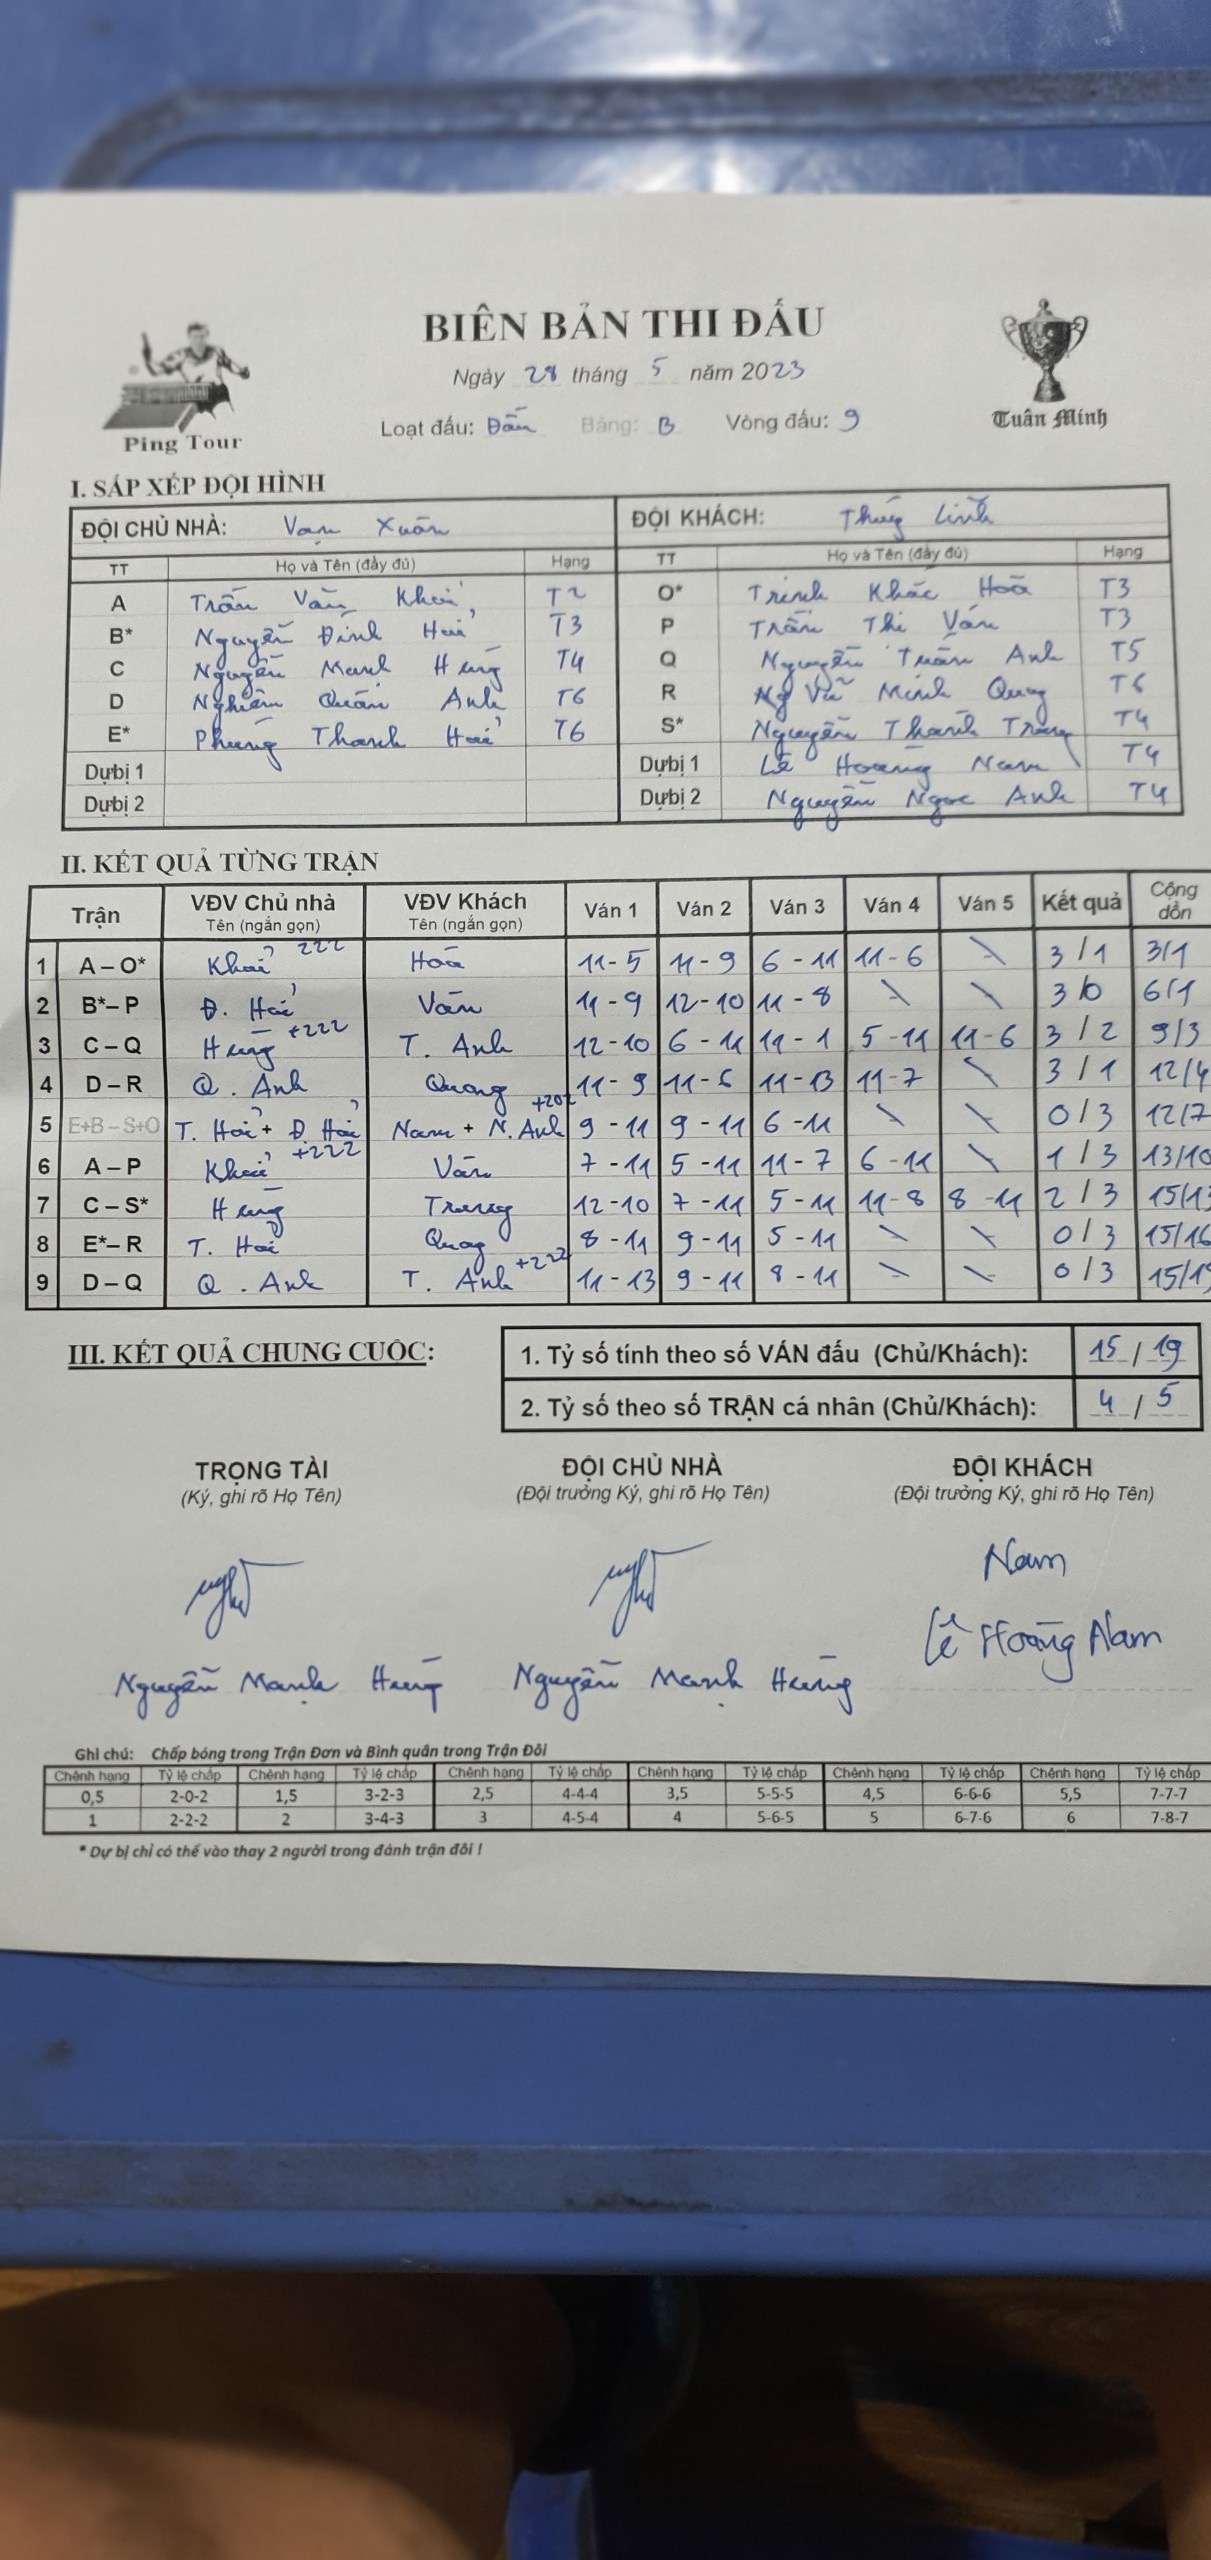 BIÊN BẢN THI ĐẤU
Ngày 28 tháng 5 năm 2023
Loạt đấu: Đấu Bảng: B Vòng đấu: 9
Ping Tour
Tuân Minh
I. SẮP XẾP ĐỘI HÌNH
ĐỘI CHỦ NHÀ: Vạn Xuân ĐỘI KHÁCH: Thùy Linh
TT Họ và Tên (đầy đủ) Hạng TT Họ và Tên (đầy đủ) Hạng
A Trần Văn Khải T2 O* Trịnh Khắc Hoà T3
B* Nguyễn Đình Hải T3 P Trần Thị Vân T3
C Nguyễn Mạnh Hùng T4 Q Nguyễn Tuấn Anh T5
D Nghiêm Quân Anh T6 R Ng Vũ Minh Quang T6
E* Phùng Thanh Hải T6 S* Nguyễn Thành Trung T4
Dự bị 1 Dự bị 1 Lê Hoàng Nam T4
Dự bị 2 Dự bị 2 Nguyễn Ngọc Anh T4
II. KẾT QUẢ TỪNG TRẬN
Trận VĐV Chủ nhà VĐV Khách Ván 1 Ván 2 Ván 3 Ván 4 Ván 5 Kết quả Cộng dồn
Tên (ngắn gọn) Tên (ngắn gọn)
1 A – O* Khải 222 Hoà 11-5 11-9 6-11 11-6 \ 3/1 3/1
2 B* – P Đ. Hải Vân 11-9 12-10 11-8 \ \ 3/0 6/1
3 C – Q Hùng +222 T. Anh 12-10 6-11 11-1 5-11 11-6 3/2 9/3
4 D – R Q. Anh Quang 11-9 11-6 11-13 11-7 \ 3/1 12/4
5 E+B – S+O T. Hải + Đ. Hải Nam + N. Anh +202 9-11 9-11 6-11 \ \ 0/3 12/7
6 A – P Khải +222 Vân 7-11 5-11 11-7 6-11 \ 1/3 13/10
7 C – S* Hùng Trung 12-10 7-11 5-11 11-8 8-11 2/3 15/13
8 E* – R T. Hải Quang 8-11 9-11 5-11 \ \ 0/3 15/16
9 D – Q Q. Anh T. Anh +222 11-13 9-11 8-11 \ \ 0/3 15/19
III. KẾT QUẢ CHUNG CUỘC:
1. Tỷ số tính theo số VÁN đấu (Chủ/Khách): 15 / 19
2. Tỷ số theo số TRẬN cá nhân (Chủ/Khách): 4 / 5
TRỌNG TÀI ĐỘI CHỦ NHÀ ĐỘI KHÁCH
(Ký, ghi rõ Họ Tên) (Đội trưởng Ký, ghi rõ Họ Tên) (Đội trưởng Ký, ghi rõ Họ Tên)
Nam
Nguyễn Mạnh Hùng Nguyễn Mạnh Hùng Lê Hoàng Nam
Ghi chú: Chấp bóng trong Trận Đơn và Bình quân trong Trận Đôi
Chênh hạng Tỷ lệ chấp Chênh hạng Tỷ lệ chấp Chênh hạng Tỷ lệ chấp Chênh hạng Tỷ lệ chấp Chênh hạng Tỷ lệ chấp Chênh hạng Tỷ lệ chấp
0,5 2-0-2 1,5 3-2-3 2,5 4-4-4 3,5 5-5-5 4,5 6-6-6 5,5 7-7-7
1 2-2-2 2 3-4-3 3 4-5-4 4 5-6-5 5 6-7-6 6 7-8-7
* Dự bị chỉ có thể vào thay 2 người trong đánh trận đôi !